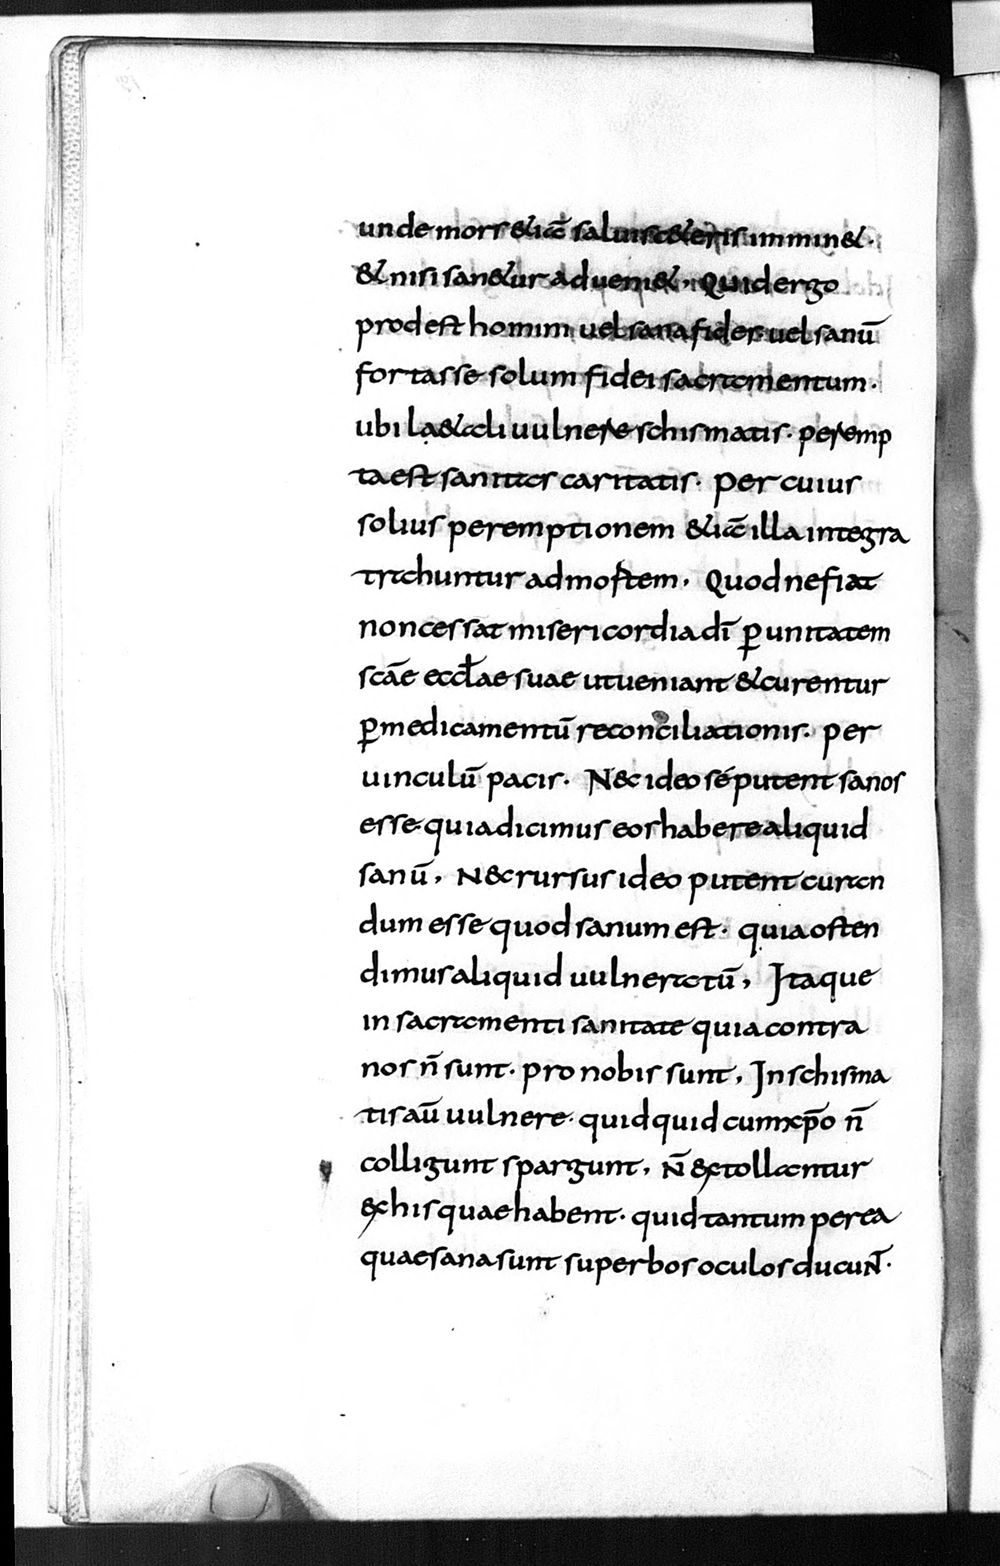 unde mors &iā saluis c&eris immin&.
& nisi san&ur adueni&, Quid ergo
prodest homini uel sana fides uel sanū
fortasse solum fidei sacramentum.
ubi la&ali uulnere schismatis. peremp
ta est sanitas caritatis. Per cuius
solius peremptionem &iā illa integra
trahuntur ad mortem. Quod ne fiat
non cessat misericordia dī ꝑ unitatem
scāe eccłae suae ut ueniant & curentur
ꝑ medicamentū reconciliationis. per
uinculū pacis. N&c ideo sé putent sanos
esse quia dicimus eos habere aliquid
sanū, N&c rursus ideo putent curan
dum esse quod sanum est. quia osten
dimus aliquid uulneratū, Itaque
in sacramenti sanitate quia contra
nos n̄ sunt. pro nobis sunt, In schisma
tis aū uulnere. quidquid cum xp̄o n̄
colligunt spargunt, N̄ extollantur
ex his quae habent. quid tantum per ea
quae sana sunt superbos oculos ducuNT.